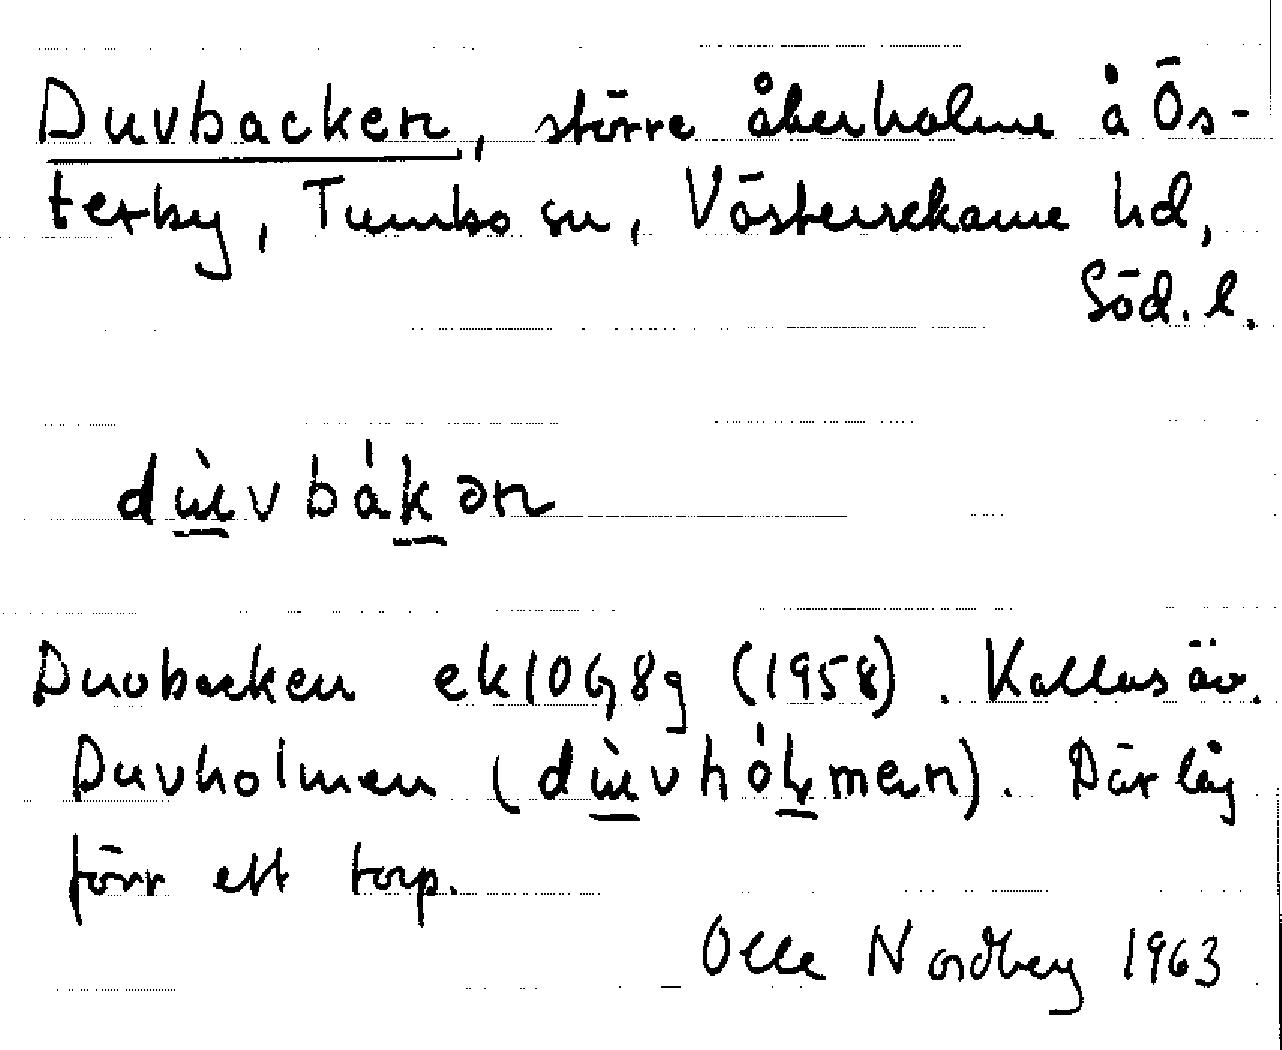 Duvbacken, större åkerholme å Ös-
terby, Tumbo sn, Västerrekarne hd,
Söd. l.
dɯ̀vbákən
Duvbacken ek10G8g (1958). Kallas äv.
Duvholmen (dɯ̀vhóɭmen). Där låg
förr ett torp.
Olle Nordberg 1963